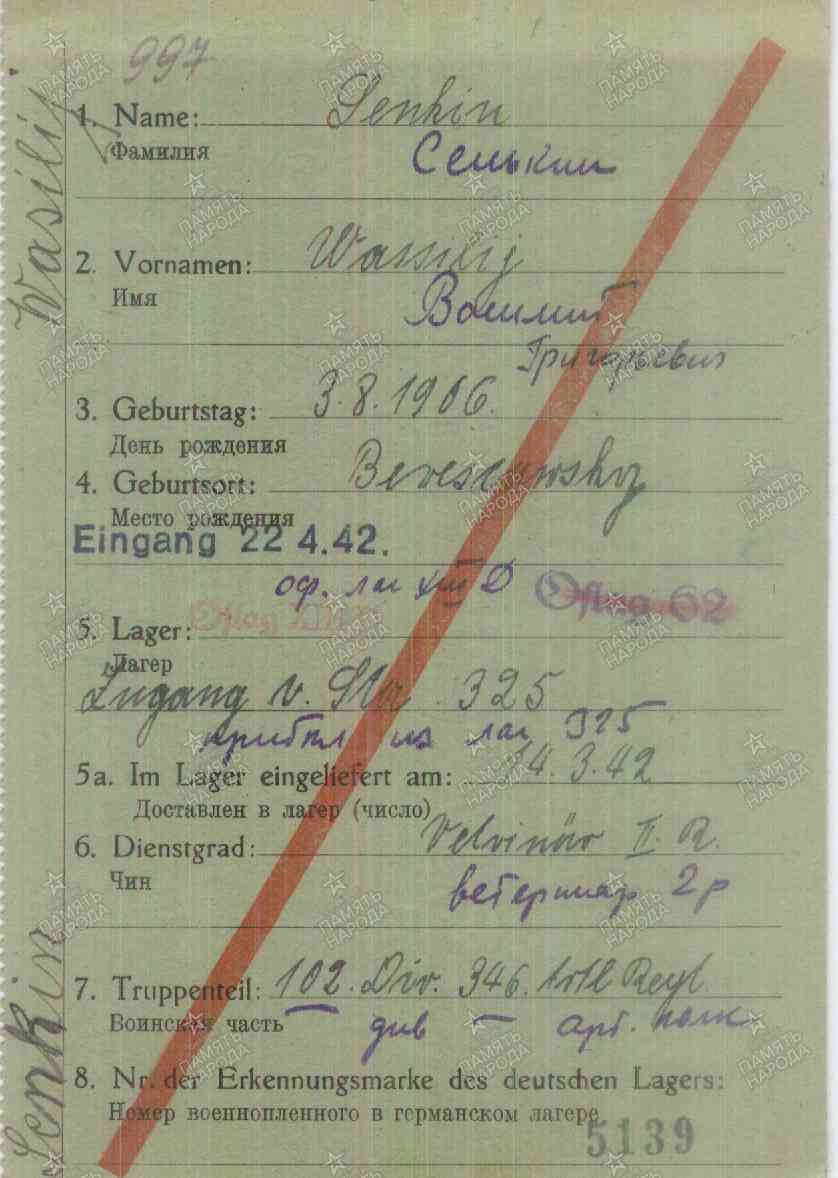 997
1. Name: Senkin
Фамилия Сенькин
2. Vornamen: Wassilij
Имя Василий
Григорьевич
3. Geburtstag: 3.8.1906.
День рождения
4. Geburtsort:
Место рождения
Eingang 22 4.42.
оф. лаг XIII D Oflag 62
5. Lager: Oflag XIII D
Лагер
Zugang v. Sta. 325
прибыл из лаг 325
5a. Im Lager eingeliefert am: 14.3.42
Доставлен в лагер (число)
6. Dienstgrad: II. R.
Чин ветеринар 2 р
7. Truppenteil: 102. Div. 346. Artl Regt
Воинская часть — див — арт. полк
8. Nr. der Erkennungsmarke des deutschen Lagers:
Номер военнопленного в германском лагере
5139
Senkin Wasilij
ПАМЯТЬ НАРОДА